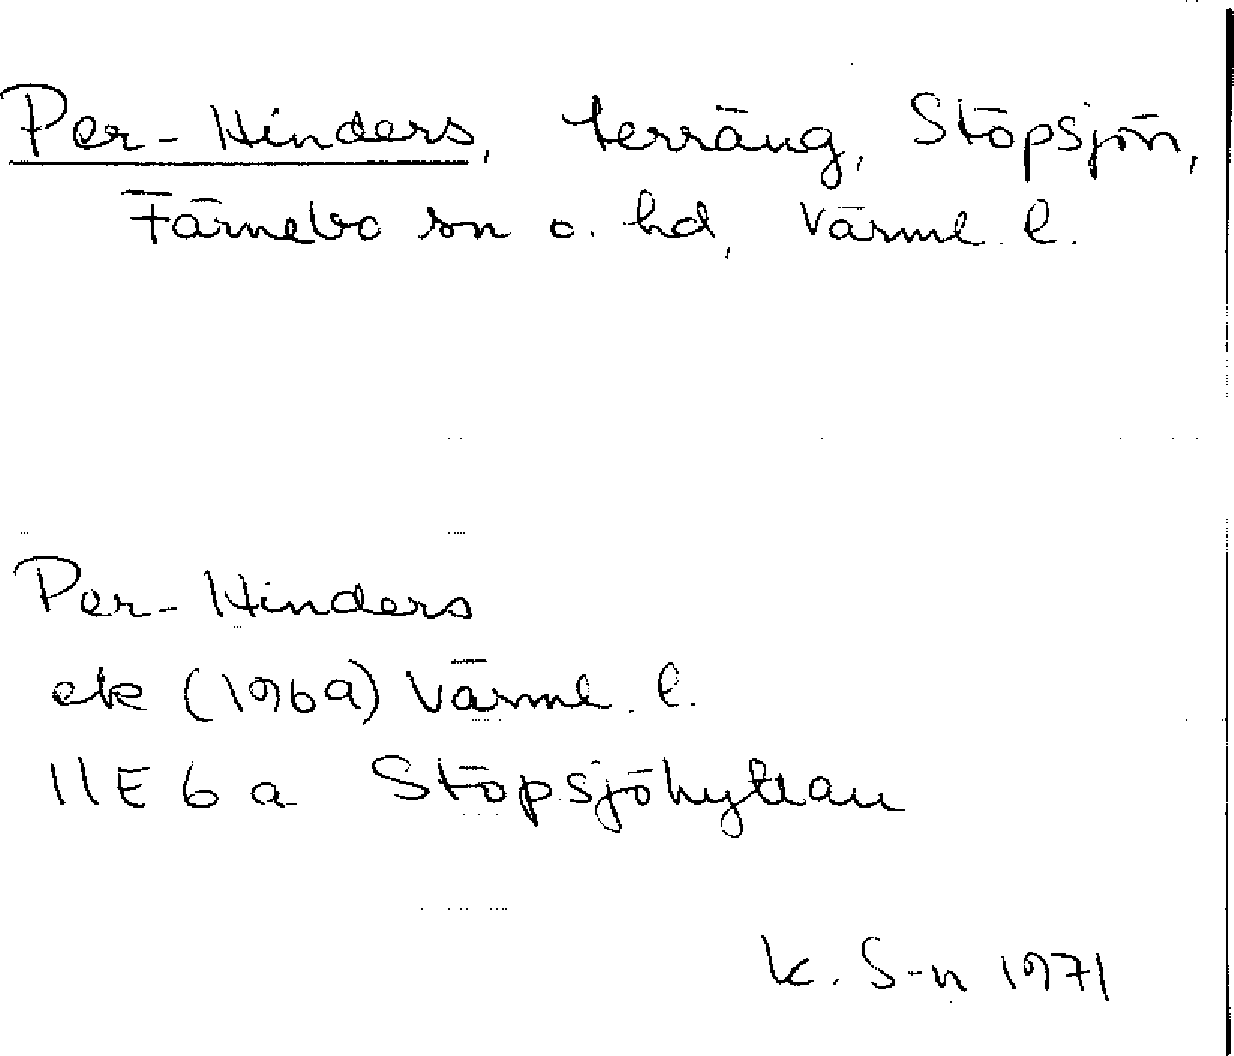 Per-Hinders, terräng, Stöpsjön,
Färnebo sn o. hd, Värml. l.
Per-Hinders
ek (1969) Värml. l.
11E 6 a Stöpsjöhyttan
K. S-n 1971